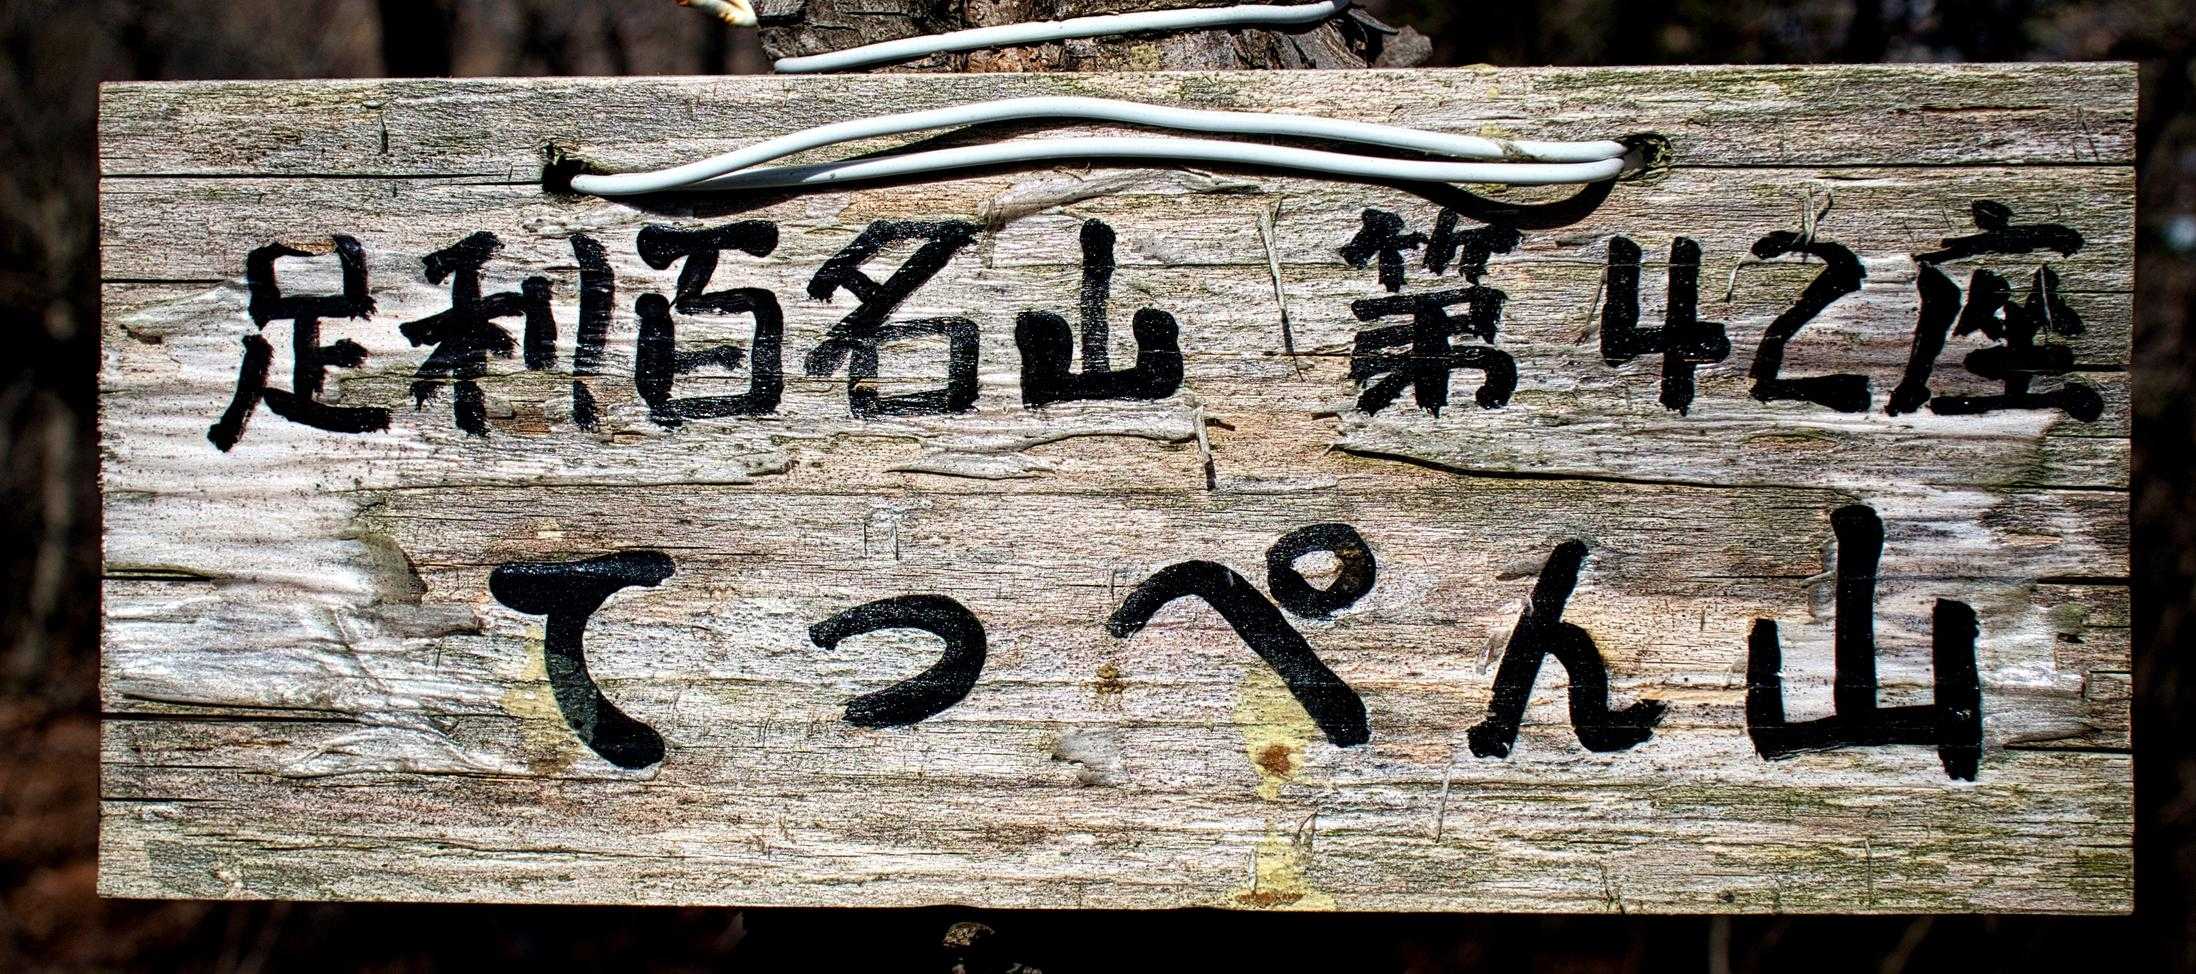 足利百名山 第42座
てっぺん山